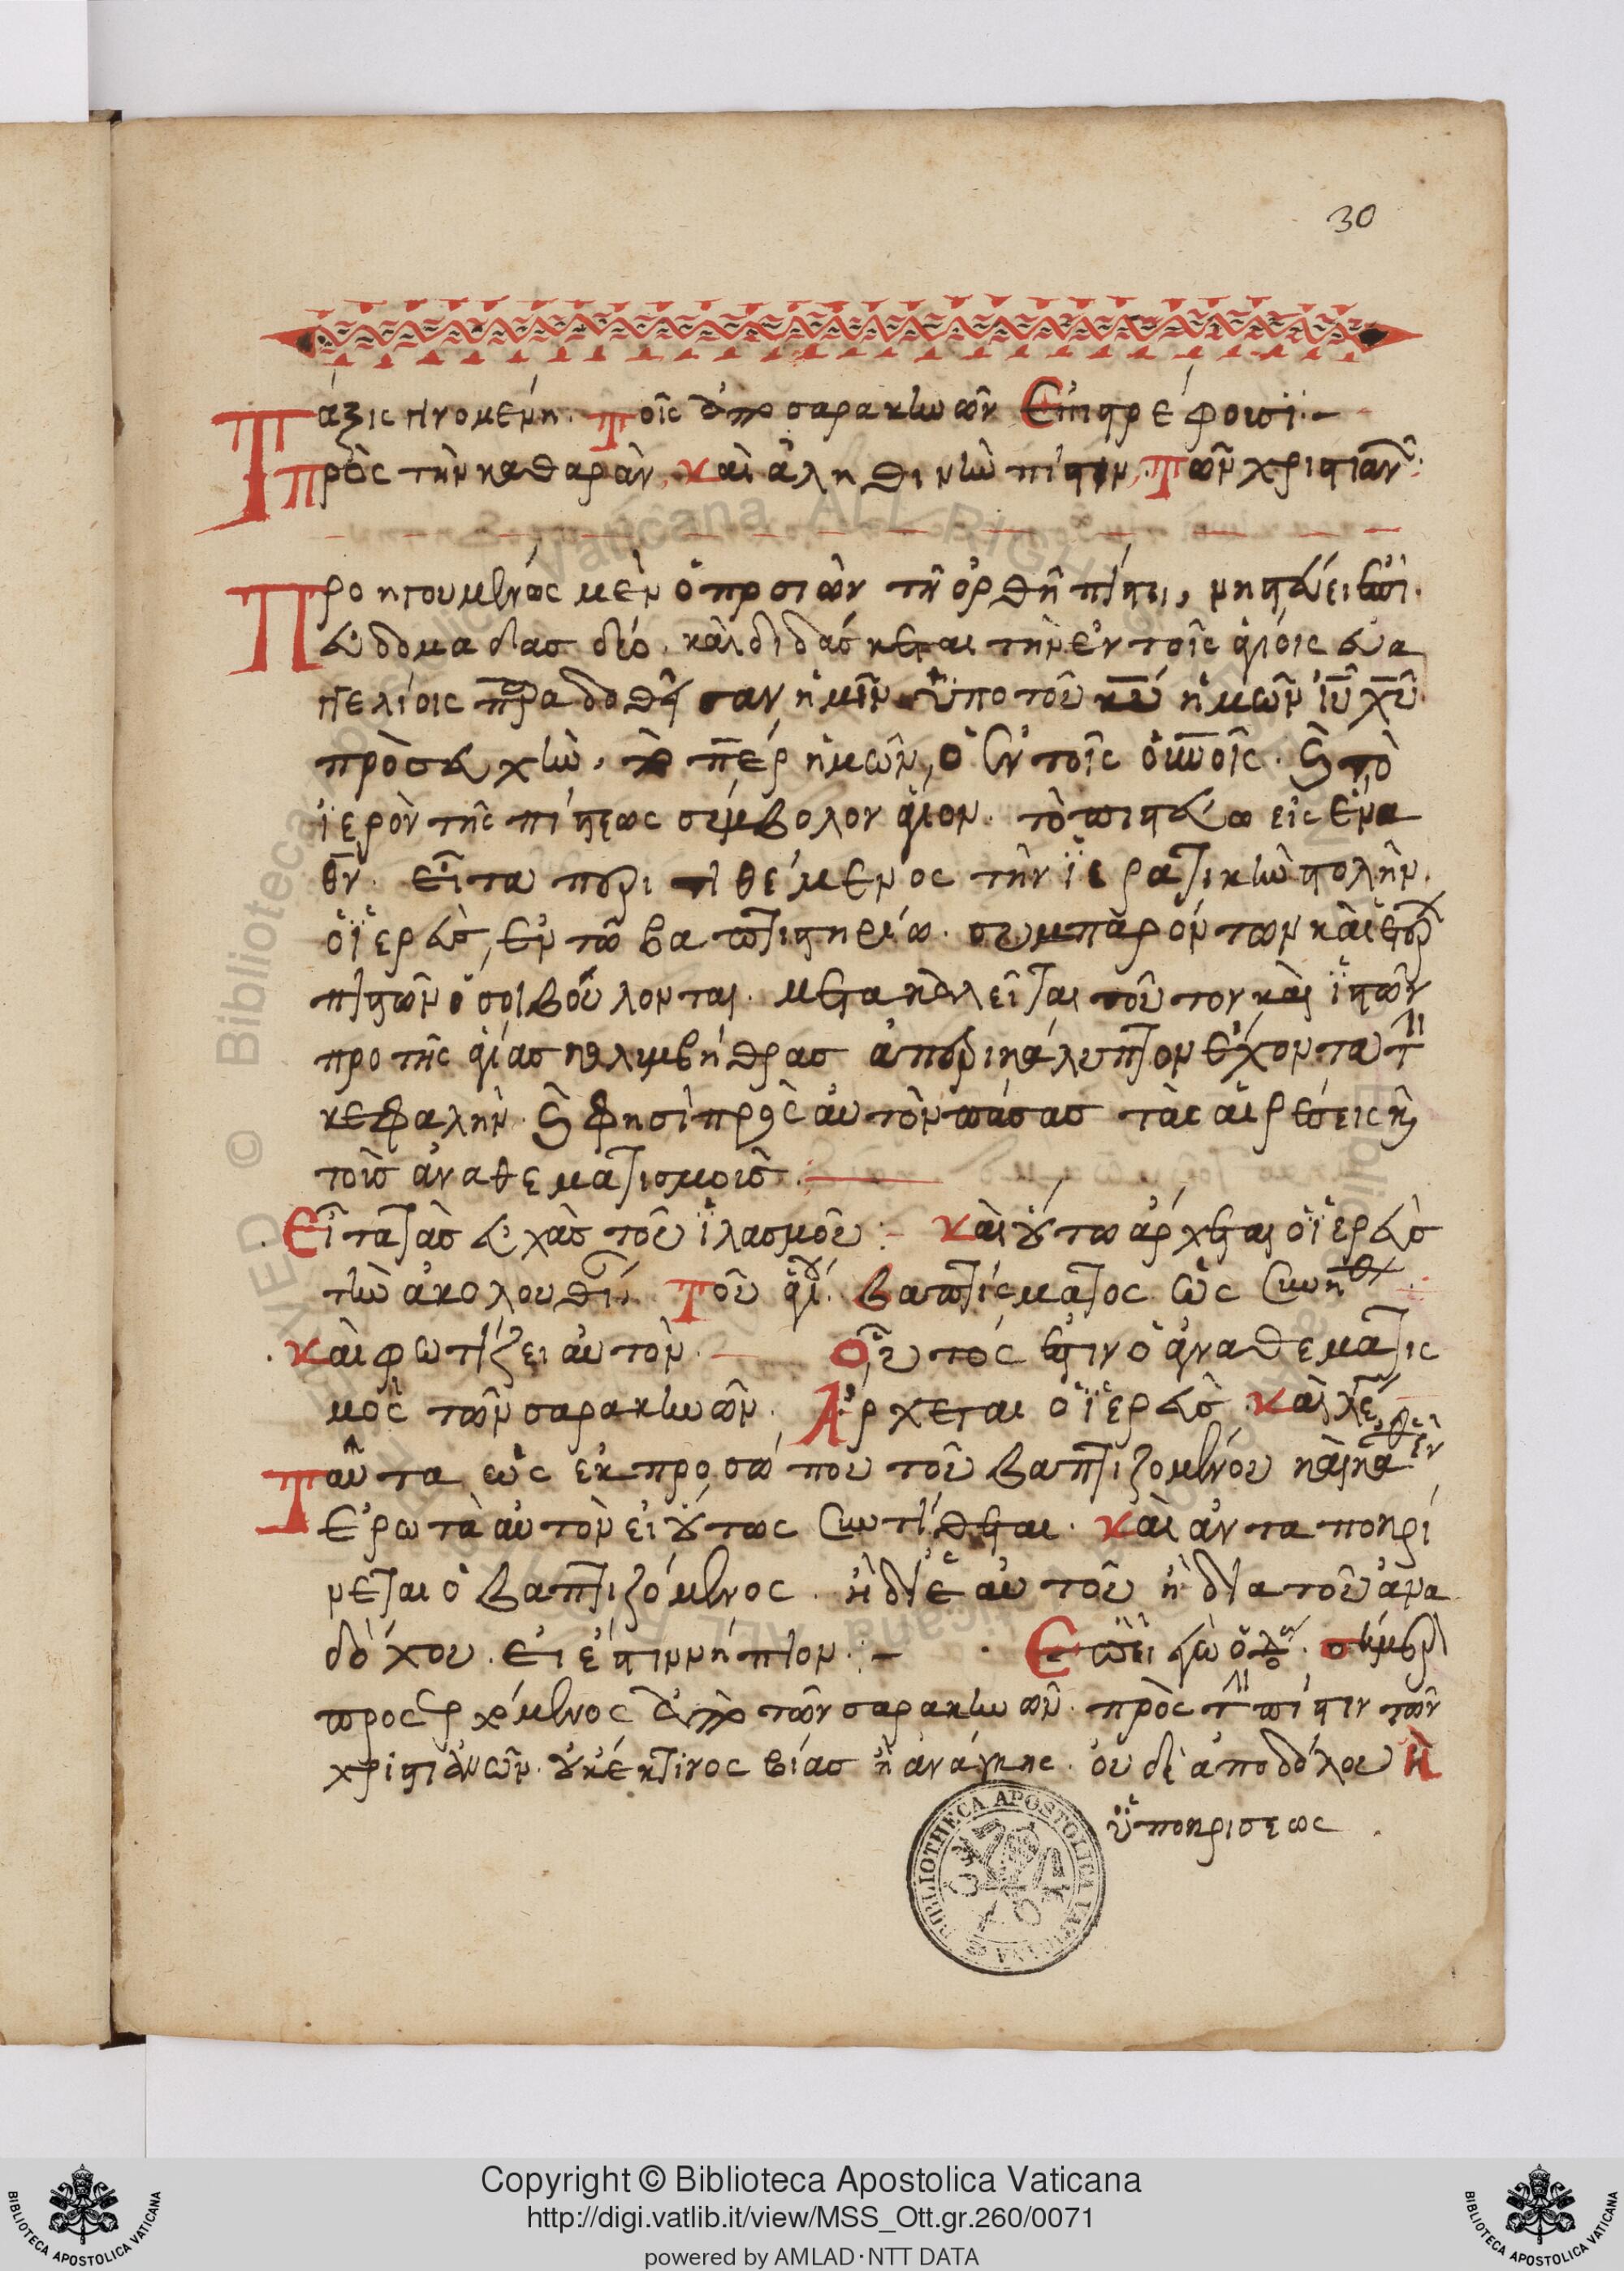 30
Τάξις γινομένη. τοῖς ἀπὸ σαρακηνῶν ἐπιστρέφουσι·
πρὸς τὴν καθαρὰν, καὶ ἀληθινὴν πίστιν, τῶν χριστιανῶν·
Προηγουμένως μὲν ὁ προσιὼν τῆ ὀρθῆ πίστει, νηστεύει ὡσεὶ.
ἑβδομάδας δύο. καὶ διδάσκεται τὴν ἐν τοῖς ἁγίοις εὐα
γγελίοις παραδοθῆσαν ἡμῖν ὑπὸ τοῦ κυ ἡμῶν ιυ χυ.
προσευχὴν. τὸ περ ἡμῶν, ὁ ἐν τοῖς οὐνοῖς. καὶ τὸ
ἱερὸν τῆς πίστεως σύμβολον ἅγιον. τὸ πιστεύω εἰς ἕνα
θν. εἶτα περιτιθέμενος τὴν ἱερατικὴν στολὴν.
ὁ ἱερεὺς, ἐν τῶ βαπτιστηρίω. συμπαρόντων καὶ ἑτέρων
πιστῶν ὅσοι βούλονται. μετακαλεῖται τοῦτον καὶ ἱστῶν
προ τῆς ἁγίας κολυμβήθρας ἀπερικάλυπτον ἔχοντα τὴν
κεφαλὴν. καὶ φησὶ πρὸς αὐτὸν πάσας τὰς αἱρέσεις καὶ
τοῖς ἀναθεματισμοῖς.
Εἶτα τὰς εὐχὰς τοῦ ἱλασμοῦ: καὶ οὕτω ἄρχεται ὁ ἱερεὺς
τὴν ἀκολουθίαν τοῦ ἁγίου βαπτίσματος ὡς συνήθ
καὶ φωτίζει αὐτὸν. οὗτός ἐστιν ὁ ἀναθεματισ
μὸς τῶν σαρακηνῶν. Ἄρχεται ὁ ἱερεὺς καὶ λέγει
ταῦτα ὡς ἐκ προσώπου τοῦ βαπτιζομένου
ἐρωτὰ αὐτὸν εἰ οὕτως συντίθεται. καὶ ἀνταποκρί
νεται ὁ βαπτιζόμενος. ἢ δι' ἑαυτοῦ ἢ διὰ τοῦ ἀνα
δόχου. εἰ ἔστι νήπιον:
προσερχόμενος ἀπὸ τῶν σαρακηνῶν. πρὸς τὴν πίστιν τῶν
χριστιανῶν. οὐκ ἔκ τινος βίας ἢ ἀνάγκης. οὐδὲ ἀπὸ δόλου ἢ
ὑποκρίσεως
BIBLIOTHECA APOSTOLICA VATICANA
Copyright © Biblioteca Apostolica Vaticana
http://digi.vatlib.it/view/MSS_Ott.gr.260/0071
powered by AMLAD·NTT DATA
BIBLIOTECA APOSTOLICA VATICANA
BIBLIOTECA APOSTOLICA VATICANA